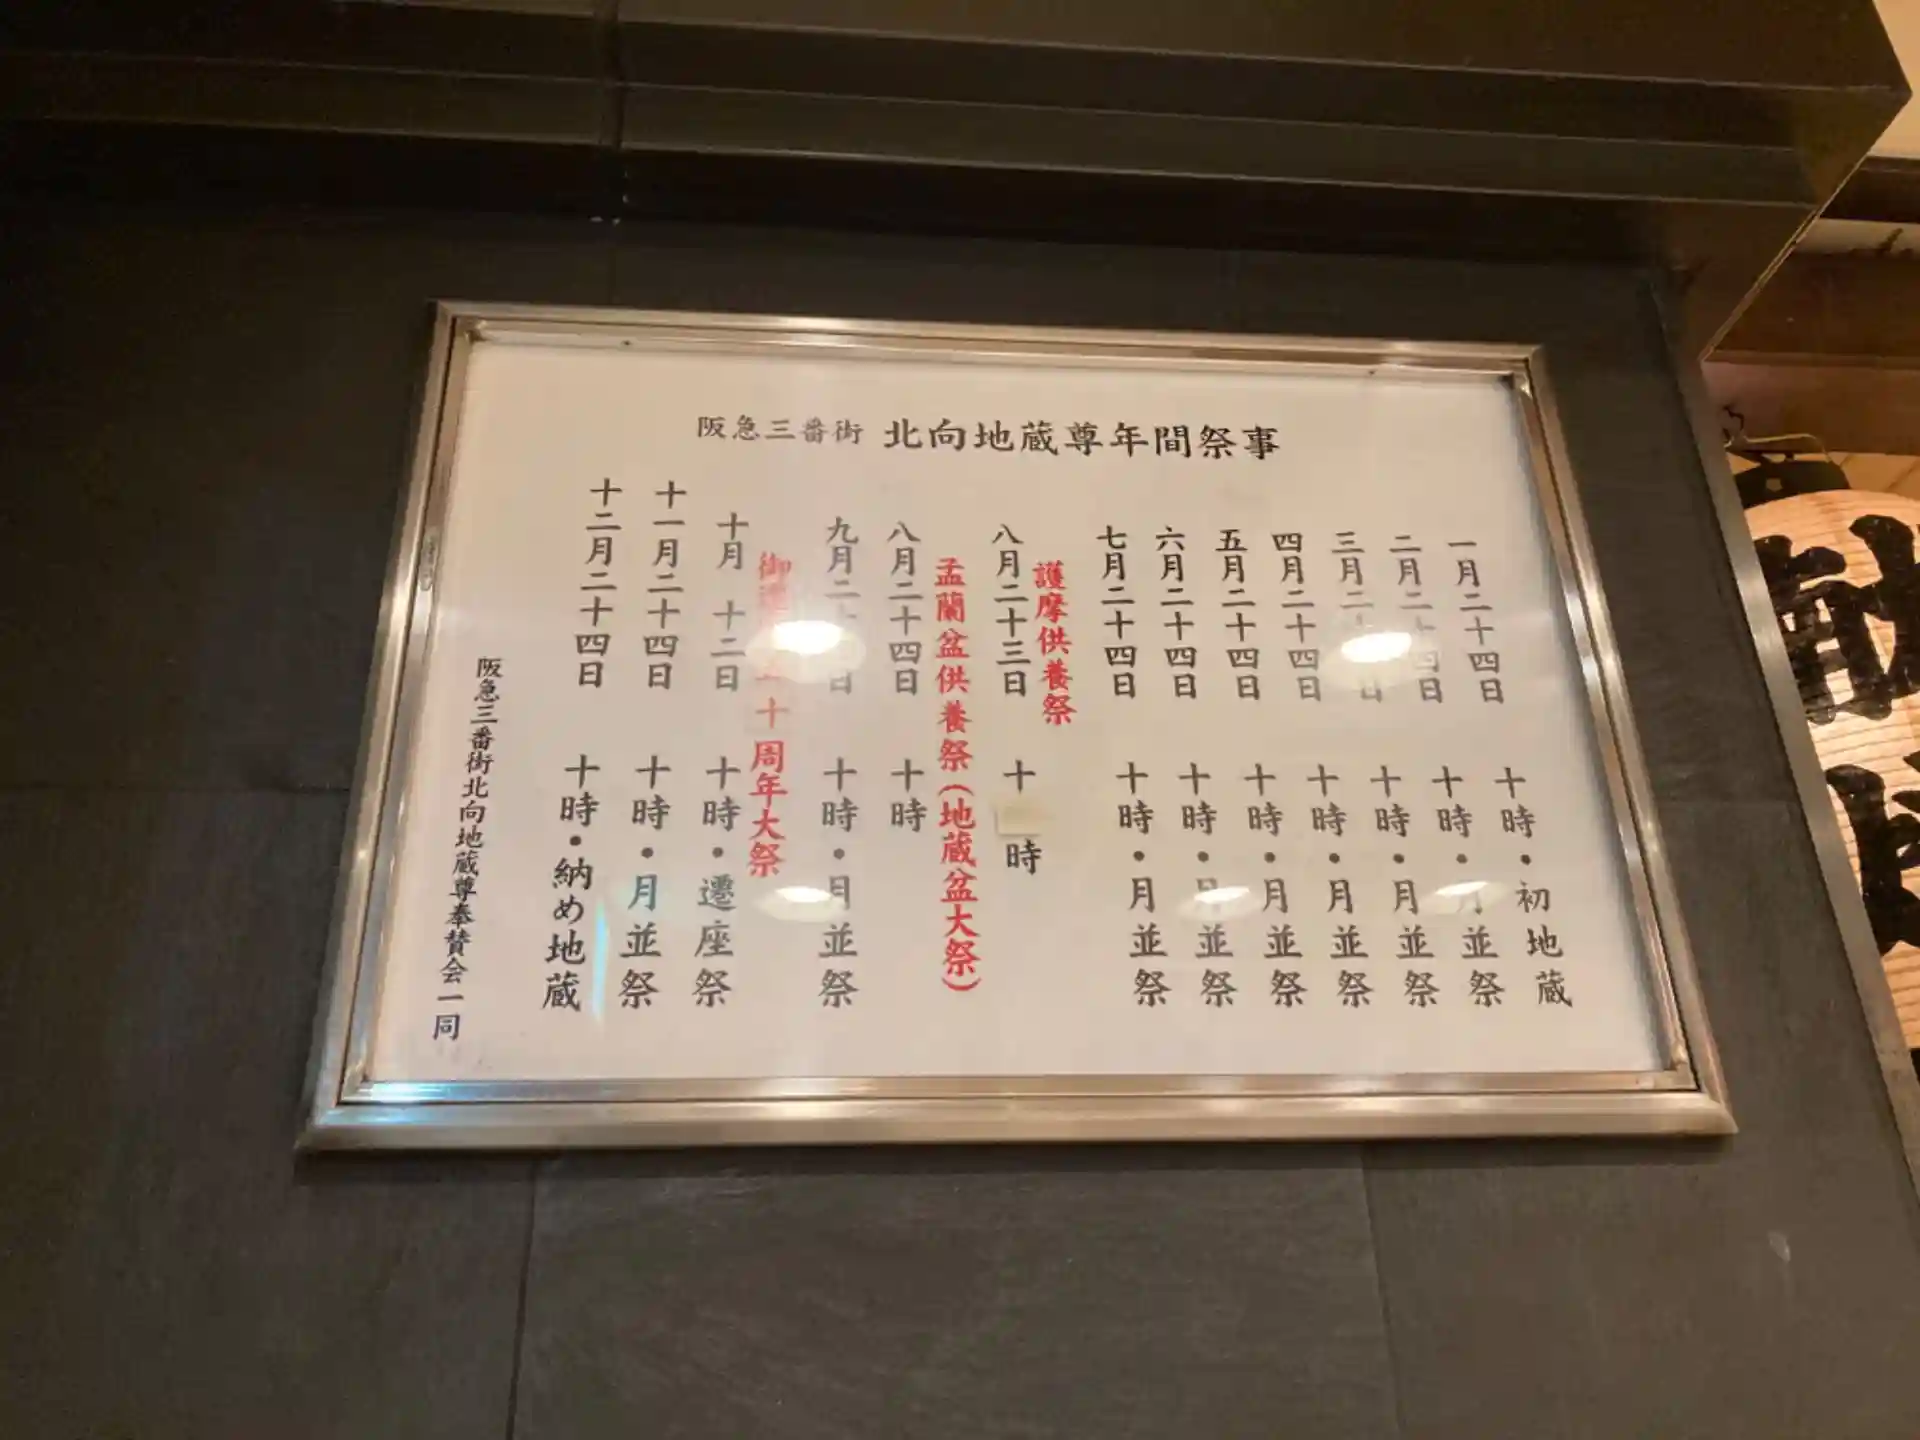 阪急三番街 北向地蔵尊年間祭事
一月二十四日 十時・初地蔵
二月二十四日 十時・月並祭
三月二十四日 十時・月並祭
四月二十四日 十時・月並祭
五月二十四日 十時・月並祭
六月二十四日 十時・月並祭
七月二十四日 十時・月並祭
護摩供養祭
八月二十三日 十 時
盂蘭盆供養祭（地蔵盆大祭）
八月二十四日 十時
九月二十四日 十時・月並祭
御遷 十周年大祭
十月 十二日 十時・遷座祭
十一月二十四日 十時・月並祭
十二月二十四日 十時・納め地蔵
阪急三番街北向地蔵尊奉賛会一同